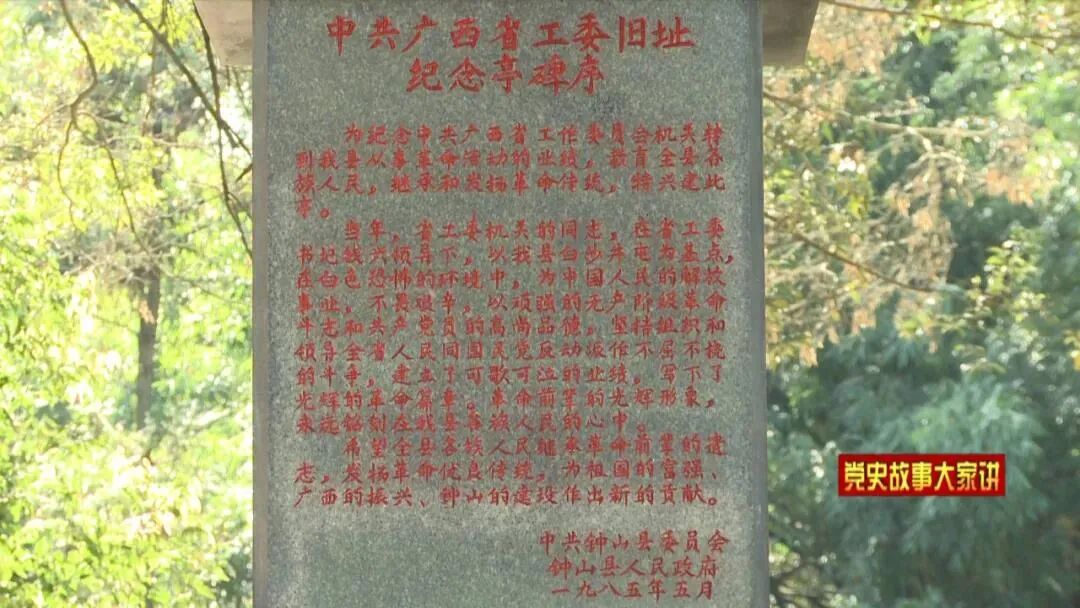 中共广西省工委旧址
纪念亭碑序
为纪念中共广西省工作委员会机关转
到我县从事革命活动的业绩，教育全县各
族人民，继承和发扬革命传统，特兴建此
亭。
当年，省工委机关的同志，在省工委
书记钱兴领导下，以我县白沙井屯为基点，
在白色恐怖的环境中，为中国人民的解放
事业，不畏艰辛，以顽强的无产阶级革命
斗志和共产党员的高尚品德，坚持组织和
领导全省人民同国民党反动派作不屈不挠
的斗争，建立了可歌可泣的业绩，写下了
光辉的革命篇章。革命前辈的光辉形象，
永远铭刻在我县各族人民的心中。
希望全县各族人民继承革命前辈的遗
志，发扬革命优良传统，为祖国的富强、
广西的振兴、钟山的建设作出新的贡献。
中共钟山县委员会
钟山县人民政府
一九八五年五月
党史故事大家讲